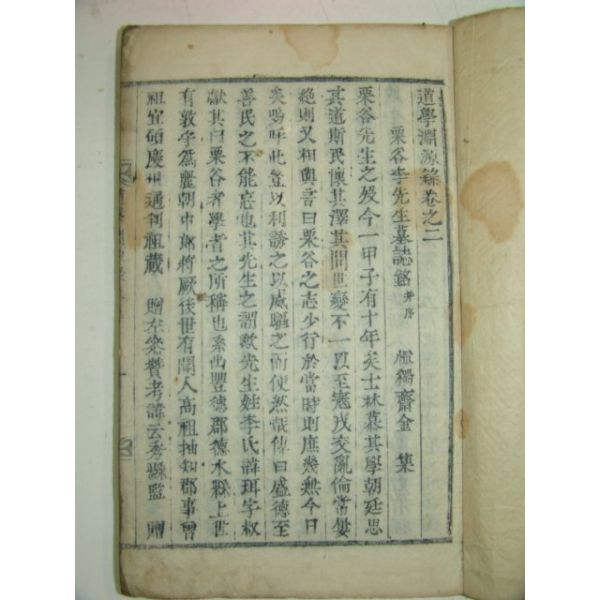 道學淵源錄卷之二
栗谷李先生墓誌銘 并序 愼獨齋金 集
栗谷先生之歿今一甲子有十年矣士林慕其學朝廷思
其道斯民懷其澤其間世變不一烈至寇戎交亂倫常斁
絶則又相與言曰栗谷之志少行於當時則庶幾無今日
矣嗚呼此豈以利誘之以威驅之而使然哉傳曰盛德至
善民之不能忘也其先生之謂歟先生姓李氏諱珥字叔
獻其曰栗谷者學者之所稱也系出豐德郡德水縣上世
有敦守爲麗朝中郞將厥後世有聞人高祖抽知郡事曾
祖宜碩慶州通判祖蕆 贈左參贊考諱元秀縣監 贈